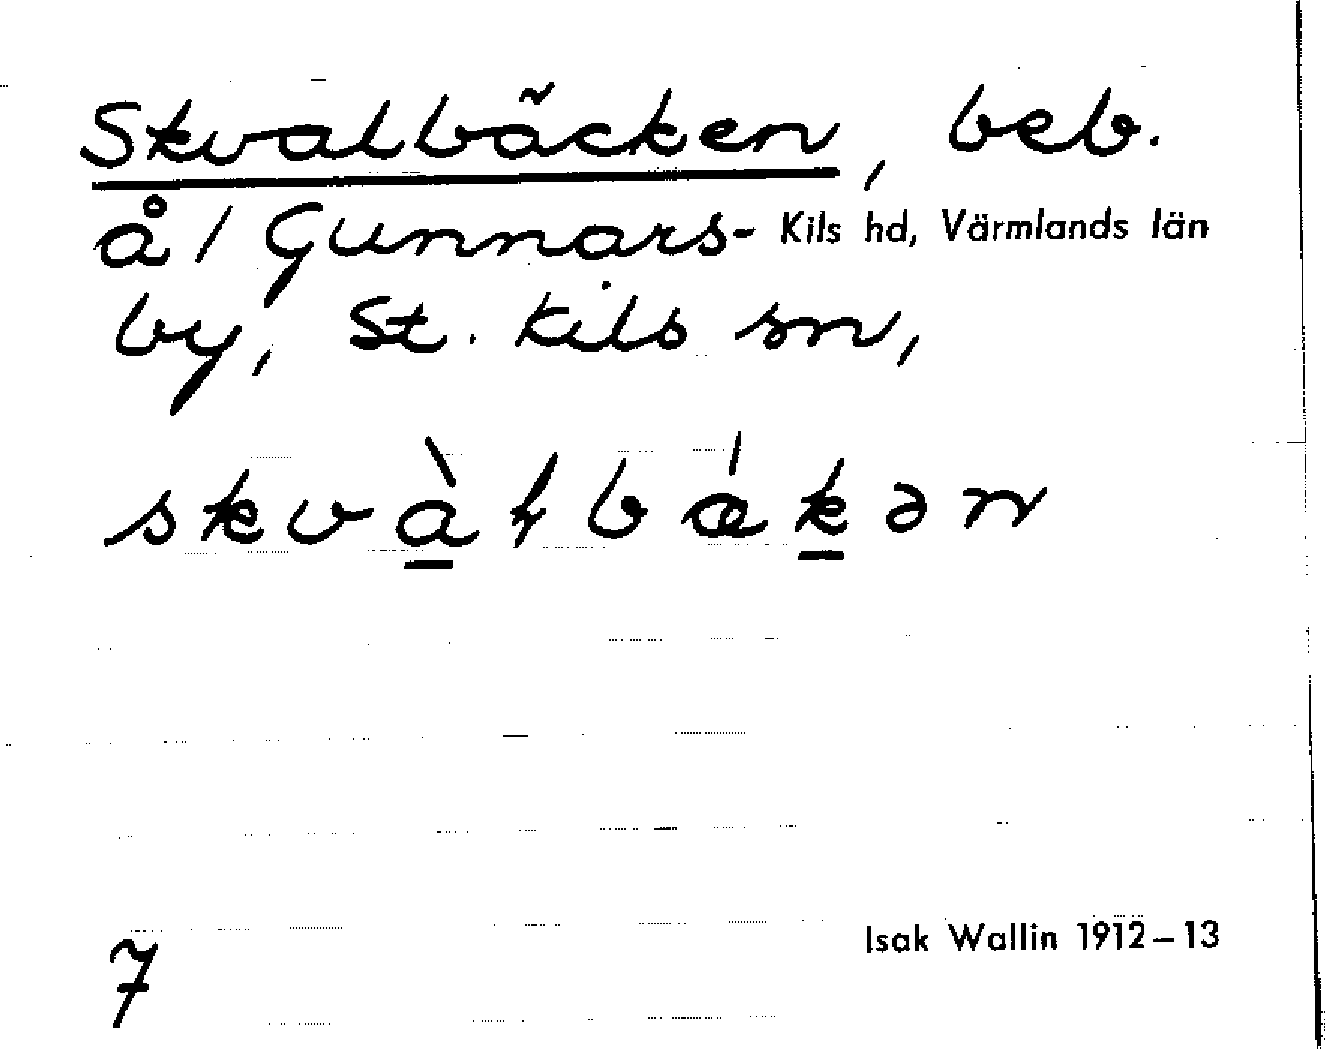 Skvalbäcken, beb.
å / Gunnars- Kils hd, Värmlands län
by, St. Kils sn,
skvàɫbǽkən
7
Isak Wallin 1912–13